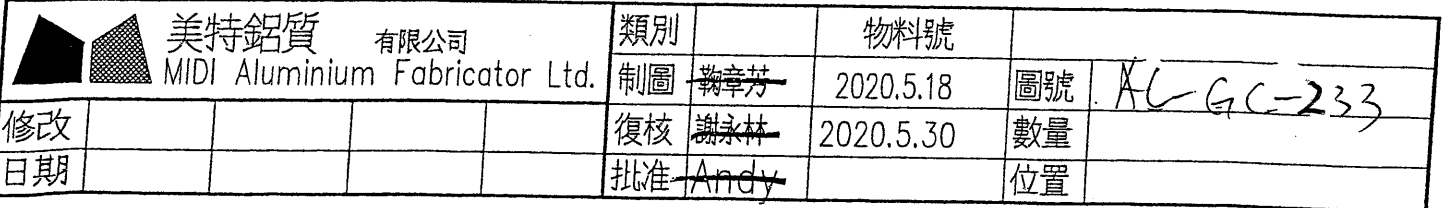 美特鋁質 有限公司
MIDI Aluminium Fabricator Ltd.
類別 物料號
制圖 鞠章芳 2020.5.18 圖號 AL-GC-233
修改 復核 謝永林 2020.5.30 數量
日期 批准 Andy 位置